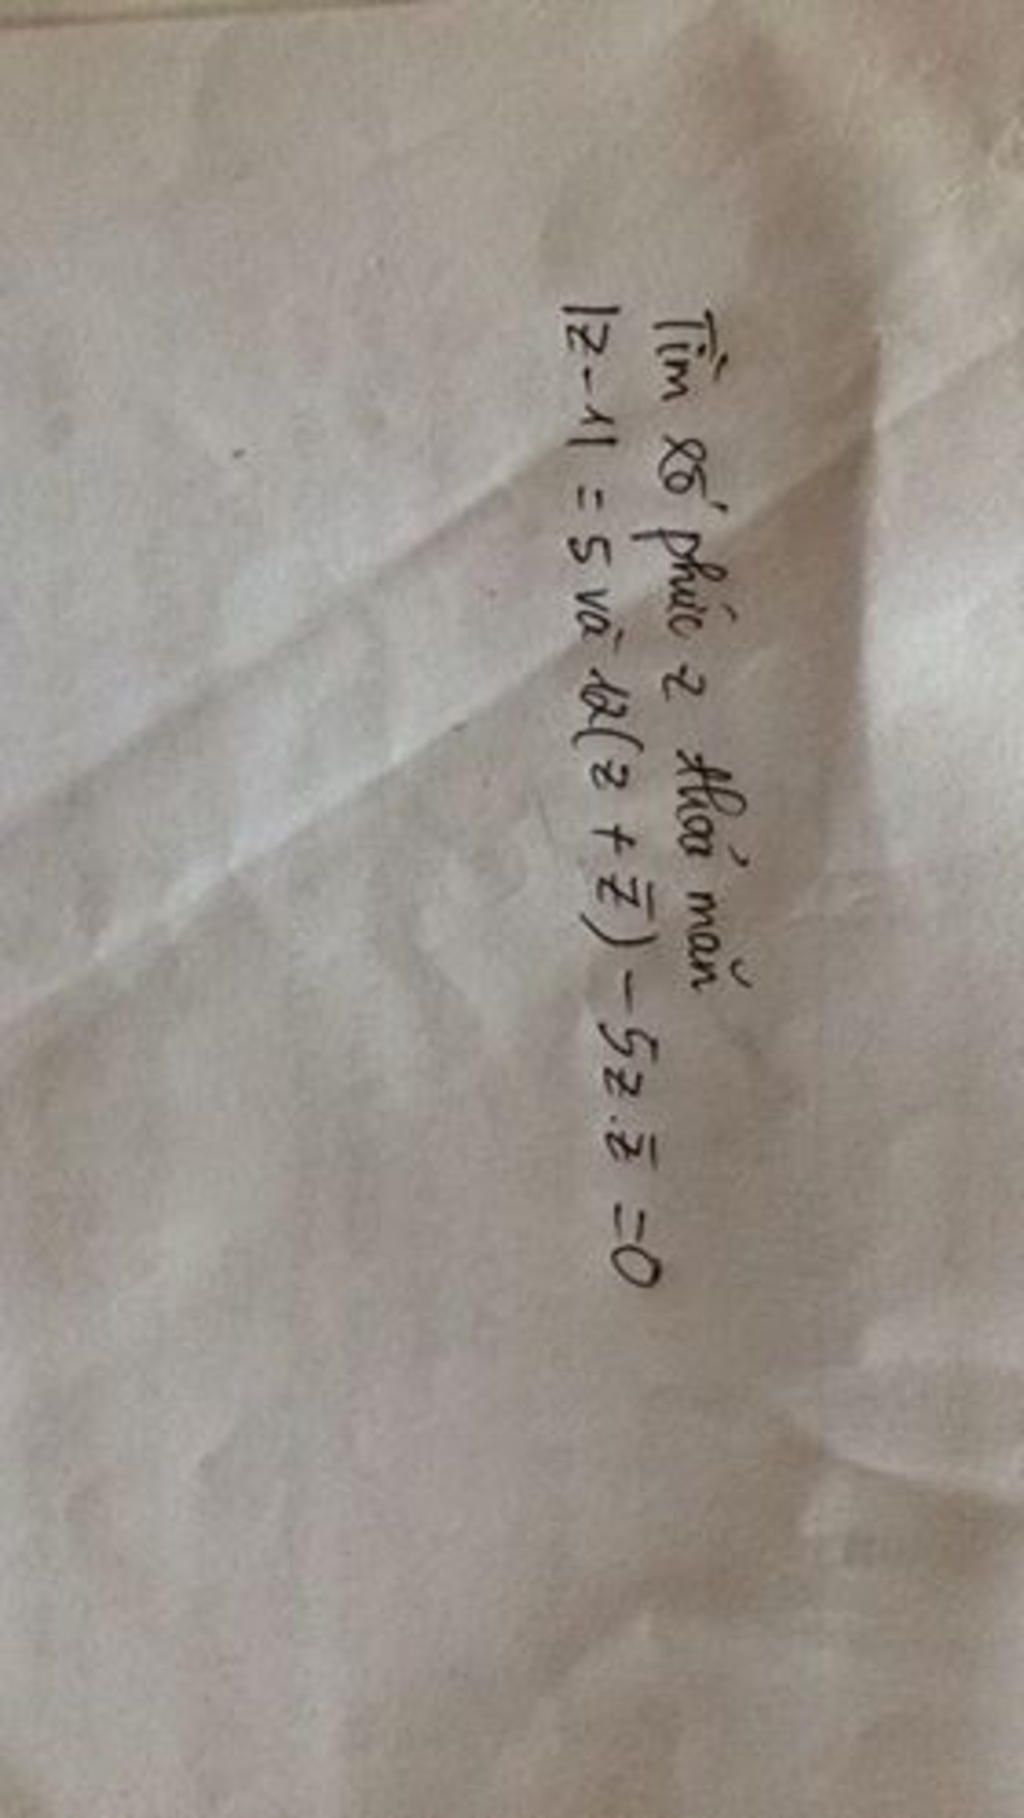 Tìm số phức z thoả mãn
|z-1| = 5 và 12(z + z̅) - 5z.z̅ =0